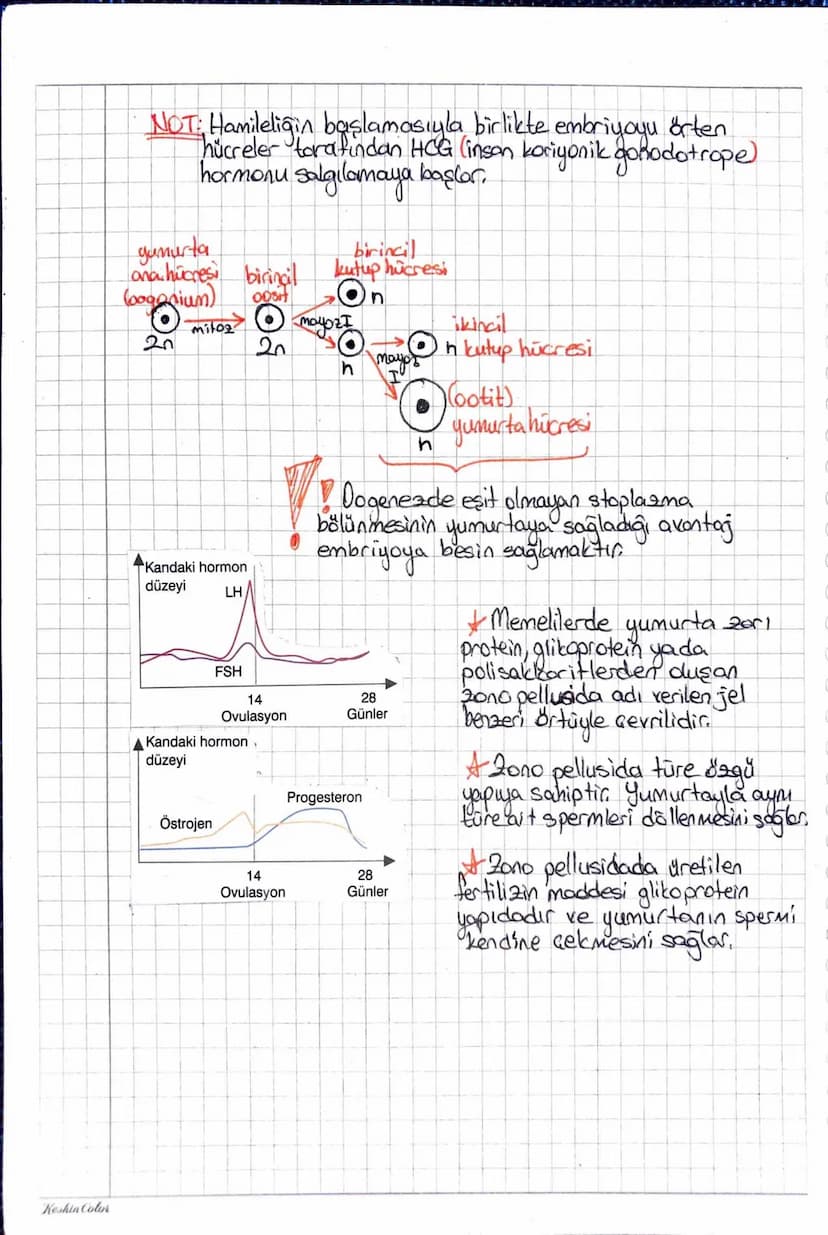 NOT: Hamileliğin başlamasıyla birlikte embriyoyu örten
hücreler tarafından HCG (insan koriyonik gonodotrope)
hormonu salgılamaya başlar.
yumurta
ana hücresi
(oogonium)
2n
mitoz
birincil
oosit
2n
mayoz I
birincil
kutup hücresi
n
n
mayoz
I
ikincil
n kutup hücresi
(ootit)
yumurta hücresi
n
! Oogenezde eşit olmayan stoplazma
bölünmesinin yumurtaya sağladığı avantaj
embriyoya besin sağlamaktır.
Kandaki hormon
düzeyi
LH
FSH
14
Ovulasyon
28
Günler
Kandaki hormon
düzeyi
Östrojen
Progesteron
14
Ovulasyon
28
Günler
Memelilerde yumurta zarı
protein, glikoprotein yada
polisakkaritlerden oluşan
zona pellusida adı verilen jel
benzeri örtüyle çevrilidir.
Zona pellusida türe özgü
yapıya sahiptir. Yumurtayla aynı
türe ait spermleri döllenmesini sağlar.
Zona pellusidada üretilen
fertilizin maddesi glikoprotein
yapıdadır ve yumurtanın spermi
kendine çekmesini sağlar.
Keskin Color